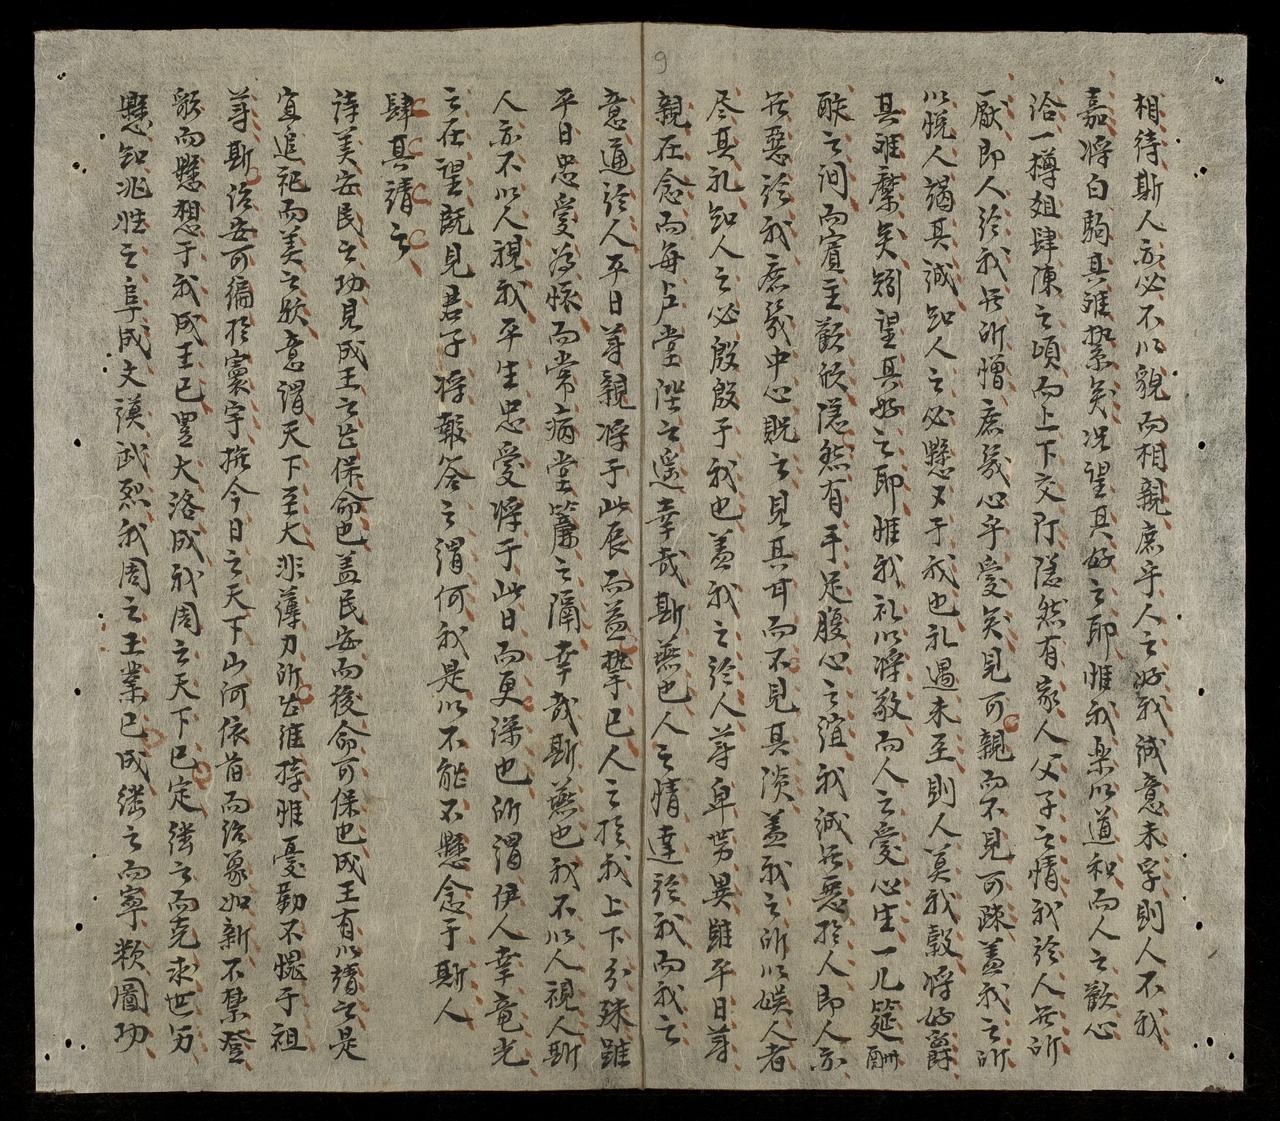 相待斯人亦必不以貌而相親庶乎人之好我誠意未孚則人不我
嘉將白駒其难縶矣况望其好之耶惟我樂以道和而人之歡心
洽一樽俎肆陳之頃而上下交際隱然有家人父子之情我於人無所
厭即人於我無所憎庶幾心乎愛矣見可親而不見可疎盖我之所
以脱人謁其誠知人之必懸之于我也礼遇未至則人莫我穀將好爵
其难縻矣矧望其好之耶惟我礼以將敬而人之愛心生一几筵酬
酢之间而賓主歡欣隱然有手足腹心之誼我誠無惡於人即人亦
無惡於我庶幾中心貺之見其甘而不見其淡盖我之所以娱人者
尽其礼知人之必殷殷于我也盖我之於人尊卑势異雖平日尊
親在念而每乕堂陛之遥幸哉斯燕也人之情達於我而我之
意通於人平日尊親将于此辰而益摯已人之於我上下分殊雖
平日忠愛為懷而常病堂簾之隔幸哉斯燕也我不以人視人斯
人亦不以人視我平生忠愛将于此日而更深也所謂伊人幸竜光
之在望既見君子将報答之謂何我是以不能不懸念于斯人
肆其靖之
詩美安民之功見成王之能保命也盖民安而後命可保也成王有以靖之是
宜追祀而美之欤意謂天下至大非薄力所能維持惟憂勤不愧于祖
尊斯治安可徧於寰宇撫今日之天下山河依旧而治象如新不禁登
歌而懸想于我成王已豐大洛成我周之天下已定継之而克求世另
懸知兆姓之阜成文謨武烈我周之王業已成継之而寧敉圖功